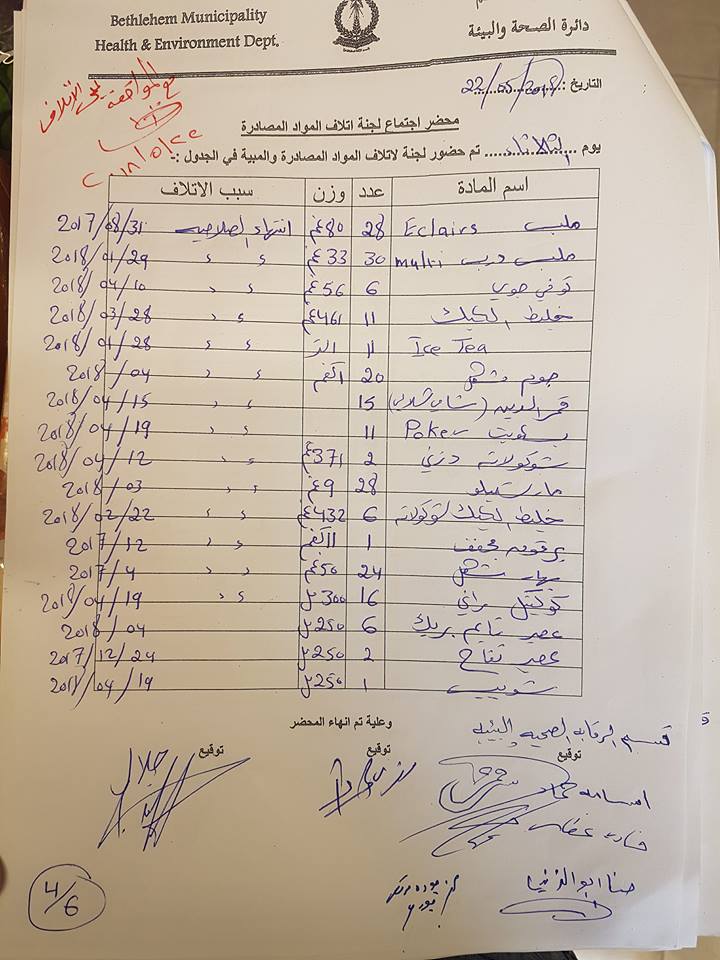 Bethlehem Municipality
Health & Environment Dept.
دائرة الصحة والبيئة
التاريخ : 22/05/2018
على الاتلاف
2018/5/22
محضر اجتماع لجنة اتلاف المواد المصادرة
يوم الثلاثاء تم حضور لجنة لاتلاف المواد المصادرة والمبية في الجدول :-
اسم المادة عدد وزن سبب الاتلاف
ملبس Eclairs 28 80غم انتهاء الصلاحيه 2017/08/31
ملبس دربس multi 30 33غم ، ، 2018/01/29
توفي جوي 6 56غم ، ، 2018/04/10
خليط الكيك 11 461غم ، ، 2018/03/28
Ice Tea 11 1لتر ، ، 2018/01/28
جوم مشكل 20 1كغم ، ، 2018/04
قمر الدين 15 ، ، 2018/04/15
بسكويت Poker 11 ، ، 2018/04/19
شوكولاته دزني 2 371غم ، ، 2018/04/12
مارسيلو 28 9غم ، ، 2018/03
خليط الكيك شوكولاته 6 432غم ، ، 2018/02/22
برقوق مجفف 1 11كغم ، ، 2017/12
بهار مشكل 24 50غم ، ، 2017/4
كوكتيل راني 16 300م ، ، 2018/04/19
عصير تايم بريك 6 250م 2018/04
عصير تفاح 2 250م 2017/12/24
شويبس 1 250م 04/19
وعلية تم انهاء المحضر
قسم الرقابه الصحيه والبيئيه
توقيع توقيع توقيع
جلال
اسامه
حنا ابو الدنيا
4/6